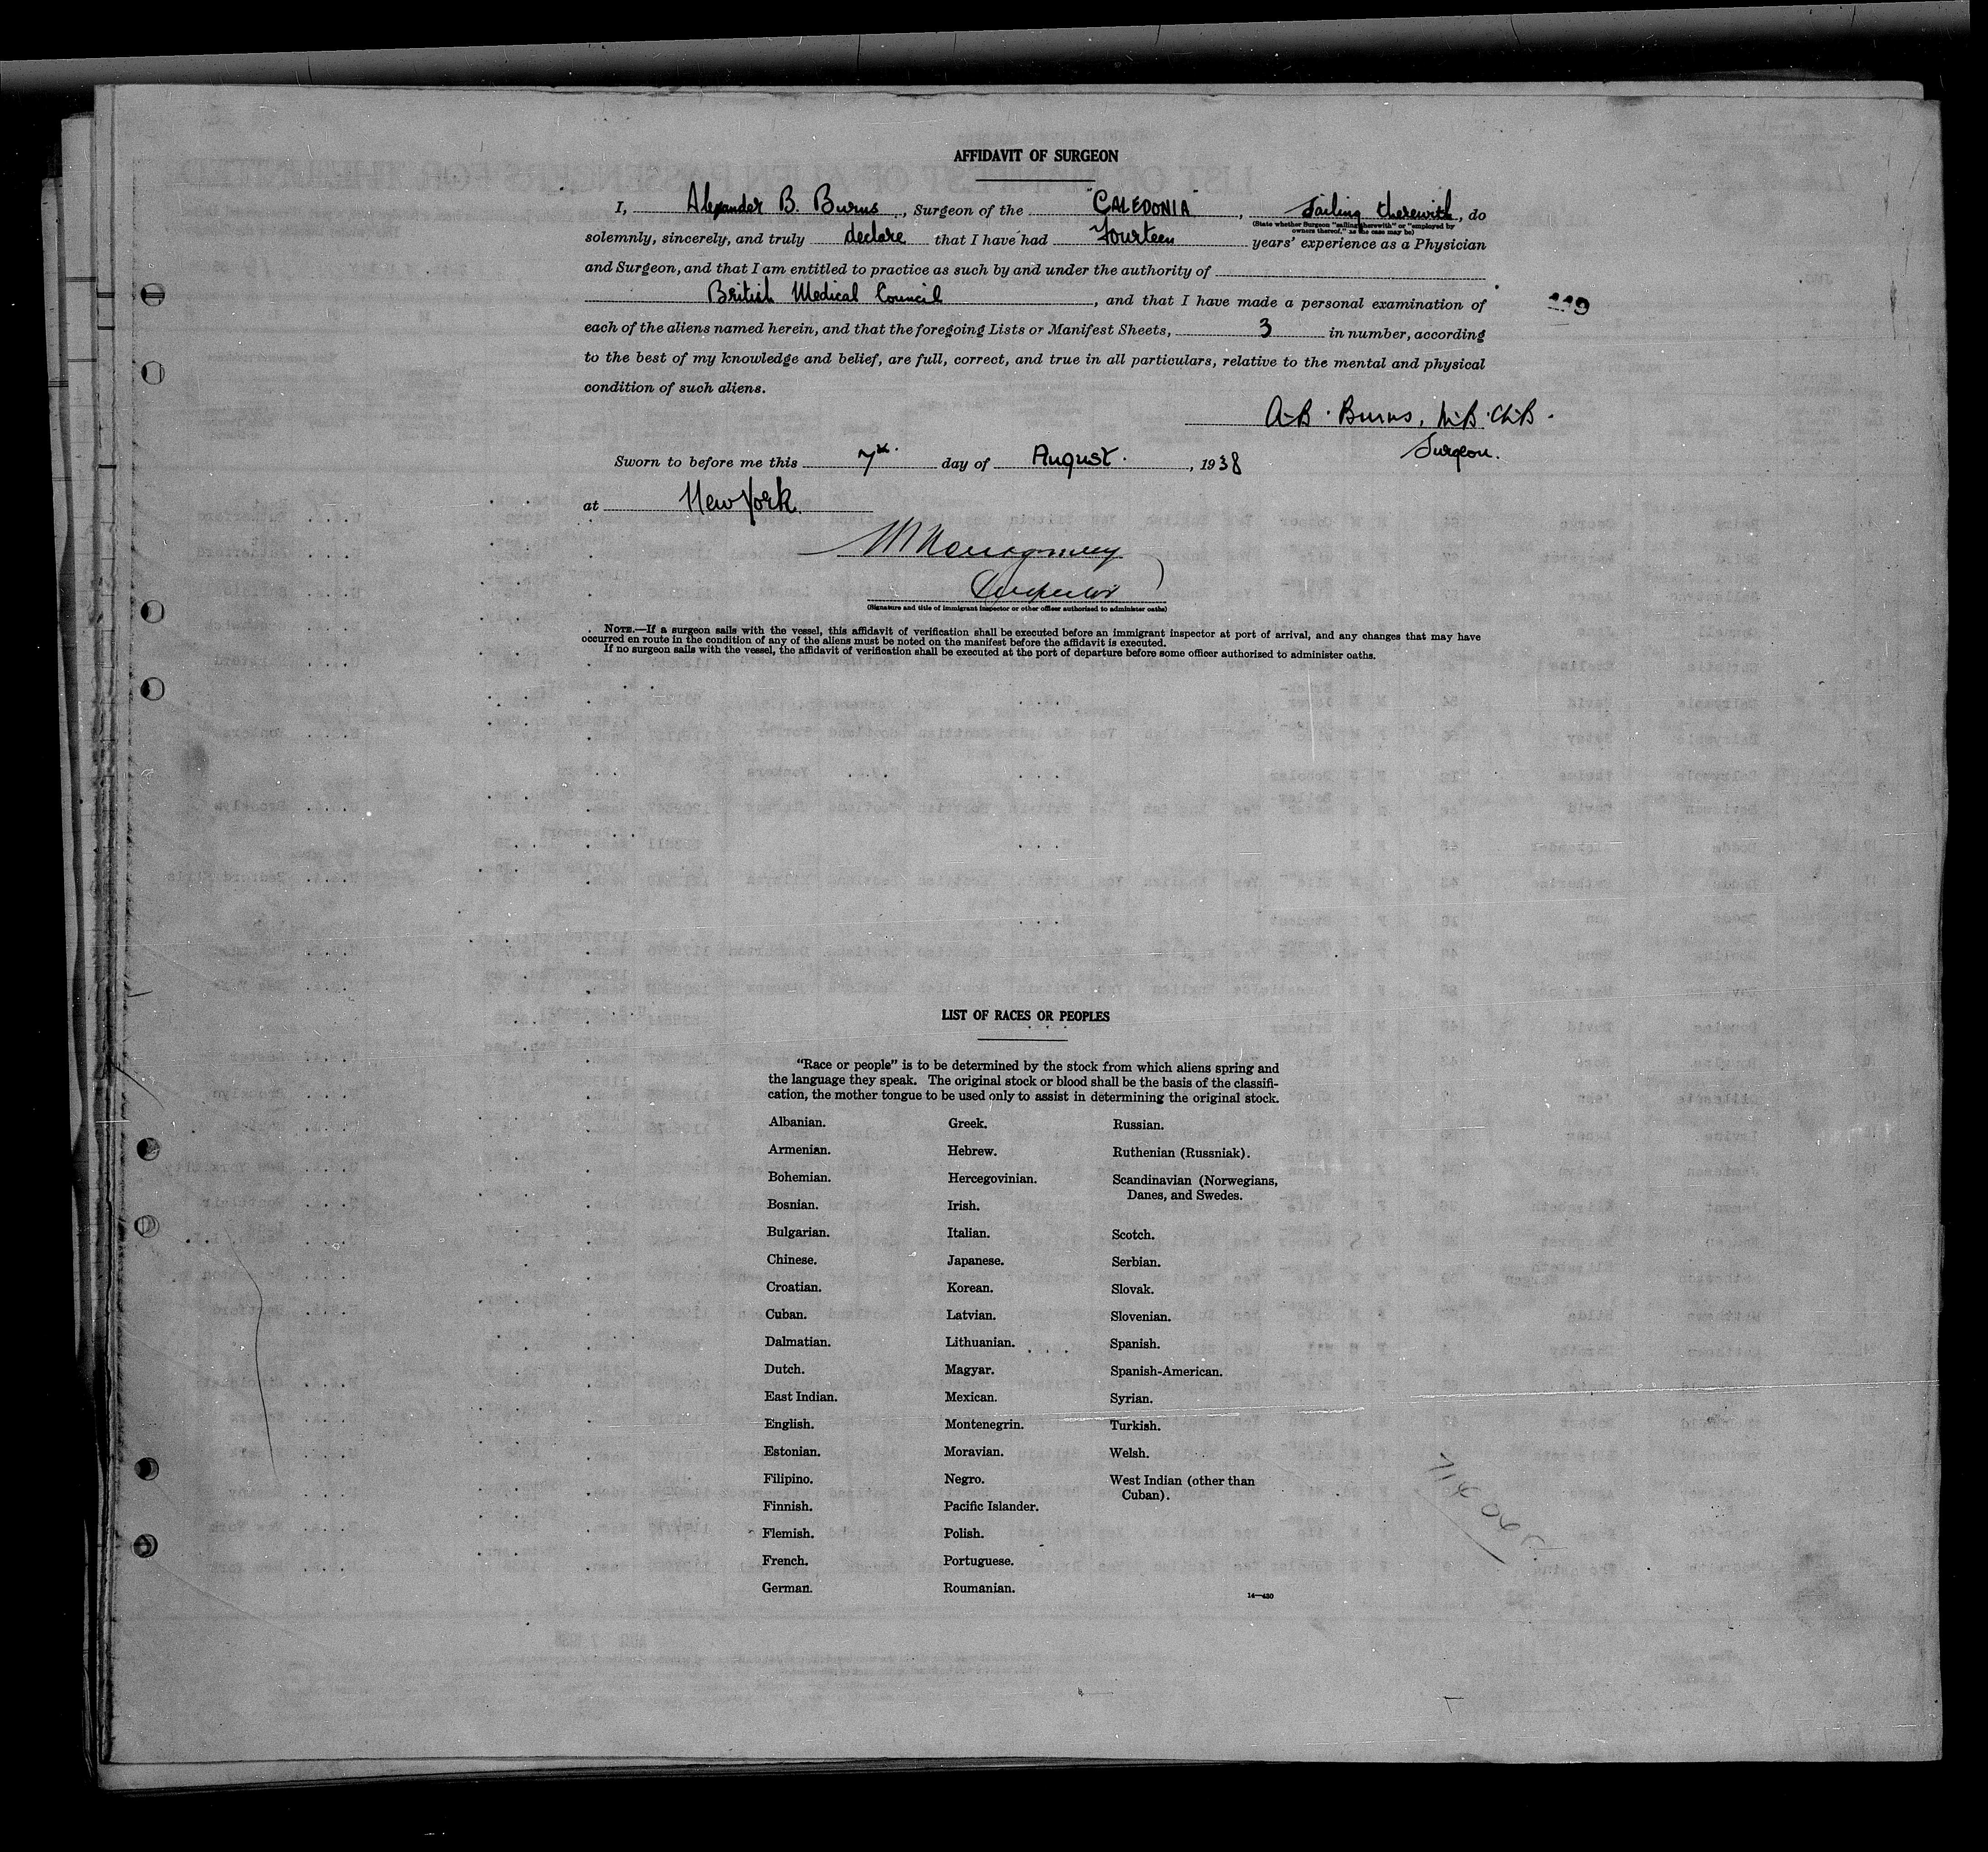 AFFIDAVIT OF SURGEON
I, Alexander B. Burns, Surgeon of the "CALEDONIA", Sailing therewith, do
(State whether Surgeon "sailing therewith" or "employed by
owners thereof," as the case may be)
solemnly, sincerely, and truly declare that I have had Fourteen years' experience as a Physician
and Surgeon, and that I am entitled to practice as such by and under the authority of
British Medical Council, and that I have made a personal examination of
119
each of the aliens named herein, and that the foregoing Lists or Manifest Sheets, 3 in number, according
to the best of my knowledge and belief, are full, correct, and true in all particulars, relative to the mental and physical
condition of such aliens.
A.B. Burns, M.B. Ch.B.
Surgeon.
Sworn to before me this 7th day of August, 1938
at New York
Inspector
(Signature and title of immigrant inspector or other officer authorized to administer oaths)
NOTE.—If a surgeon sails with the vessel, this affidavit of verification shall be executed before an immigrant inspector at port of arrival, and any changes that may have
occurred en route in the condition of any of the aliens must be noted on the manifest before the affidavit is executed.
If no surgeon sails with the vessel, the affidavit of verification shall be executed at the port of departure before some officer authorized to administer oaths.
LIST OF RACES OR PEOPLES
"Race or people" is to be determined by the stock from which aliens spring and
the language they speak. The original stock or blood shall be the basis of the classifi-
cation, the mother tongue to be used only to assist in determining the original stock.
Albanian.
Armenian.
Bohemian.
Bosnian.
Bulgarian.
Chinese.
Croatian.
Cuban.
Dalmatian.
Dutch.
East Indian.
English.
Estonian.
Filipino.
Finnish.
Flemish.
French.
German.
Greek.
Hebrew.
Hercegovinian.
Irish.
Italian.
Japanese.
Korean.
Latvian.
Lithuanian.
Magyar.
Mexican.
Montenegrin.
Moravian.
Negro.
Pacific Islander.
Polish.
Portuguese.
Roumanian.
Russian.
Ruthenian (Russniak).
Scandinavian (Norwegians,
Danes, and Swedes.
Scotch.
Serbian.
Slovak.
Slovenian.
Spanish.
Spanish-American.
Syrian.
Turkish.
Welsh.
West Indian (other than
Cuban).
14—430